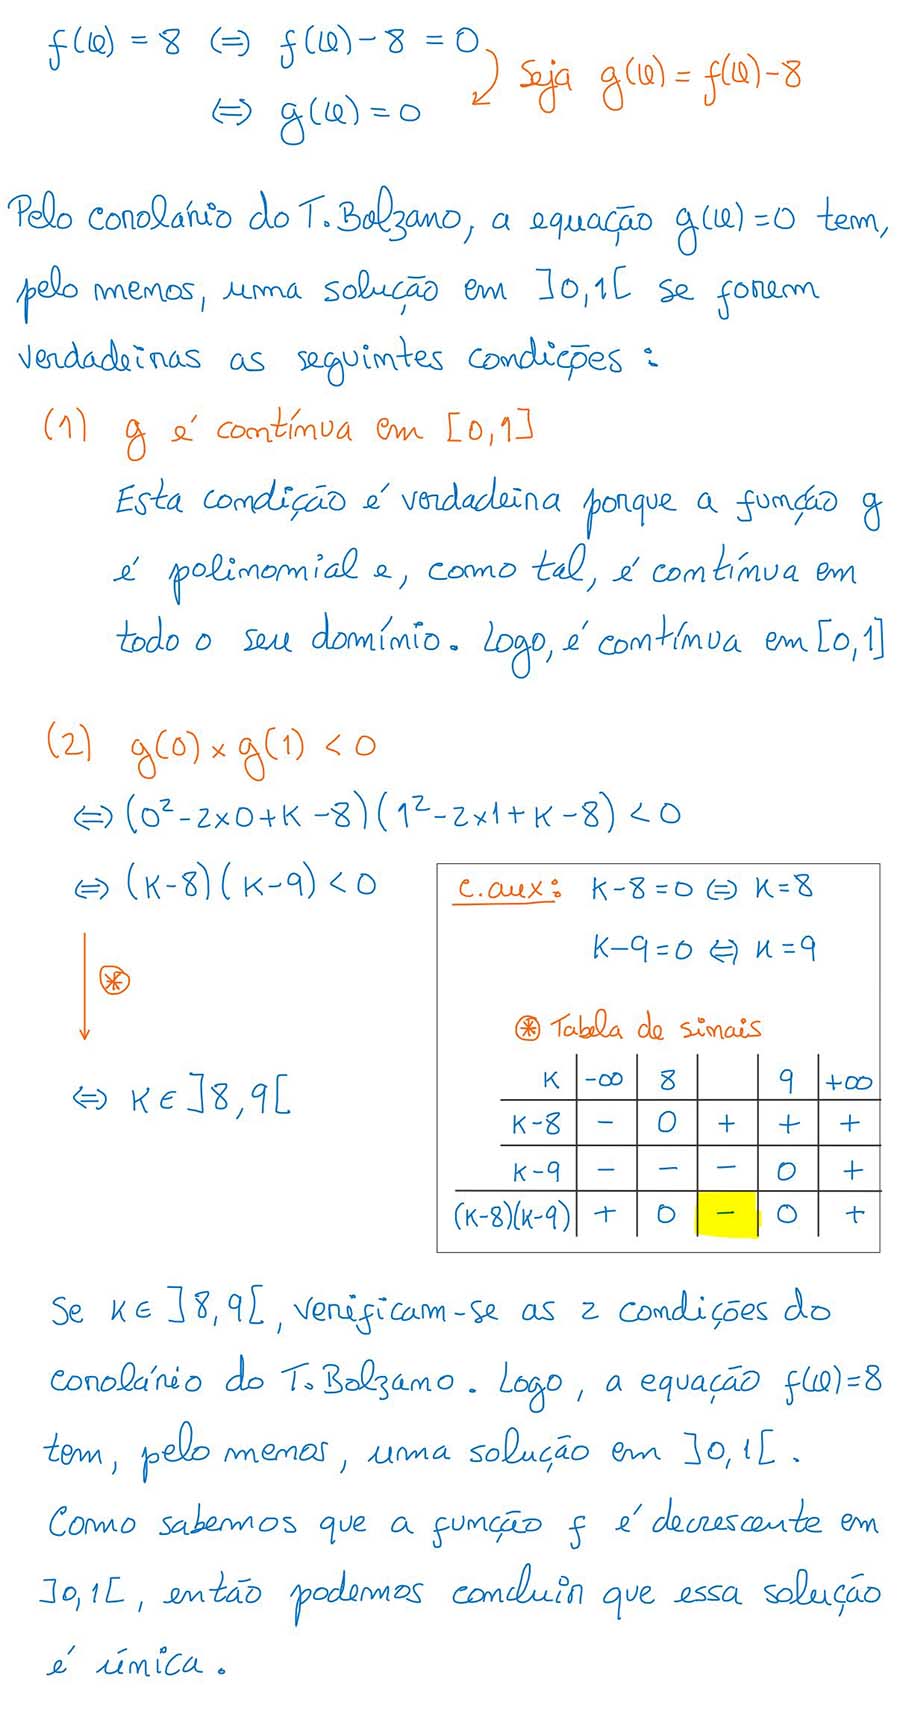 f(x) = 8 ⇔ f(x) - 8 = 0
Seja g(x) = f(x) - 8
⇔ g(x) = 0
Pelo corolário do T. Bolzano, a equação g(x) = 0 tem,
pelo menos, uma solução em ]0,1[ se forem
verdadeiras as seguintes condições :
(1) g é contínua em [0,1]
Esta condição é verdadeira porque a função g
é polinomial e, como tal, é contínua em
todo o seu domínio. Logo, é contínua em [0,1]
(2) g(0) × g(1) < 0
⇔ (0² - 2×0 + K - 8)(1² - 2×1 + K - 8) < 0
⇔ (K-8)(K-9) < 0
⊛
⇔ K ∈ ]8,9[
C.aux: K-8 = 0 ⇔ K = 8
K-9 = 0 ⇔ K = 9
⊛ Tabela de sinais
K -∞ 8 9 +∞
K-8 - 0 + + +
K-9 - - - 0 +
(K-8)(K-9) + 0 - 0 +
Se K ∈ ]8,9[, verificam-se as 2 condições do
corolário do T. Bolzano. Logo, a equação f(x)=8
tem, pelo menos, uma solução em ]0,1[.
Como sabemos que a função f é decrescente em
]0,1[, então podemos concluir que essa solução
é única.